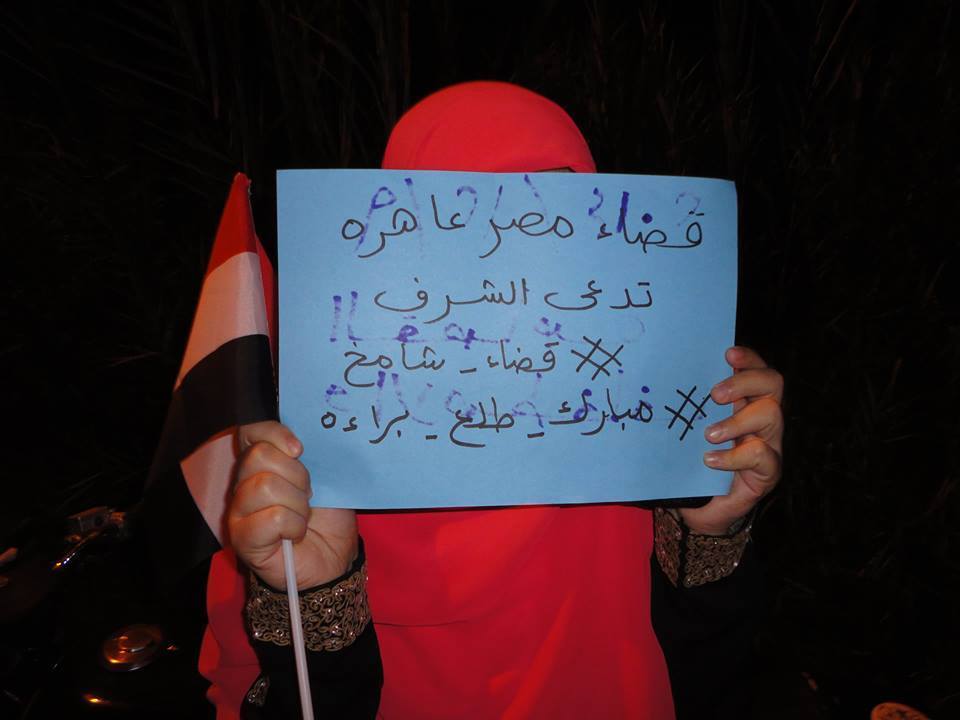 قضاء مصر عاهره
تدعى الشرف
# قضاء_شامخ
# مبارك_طلع_براءه